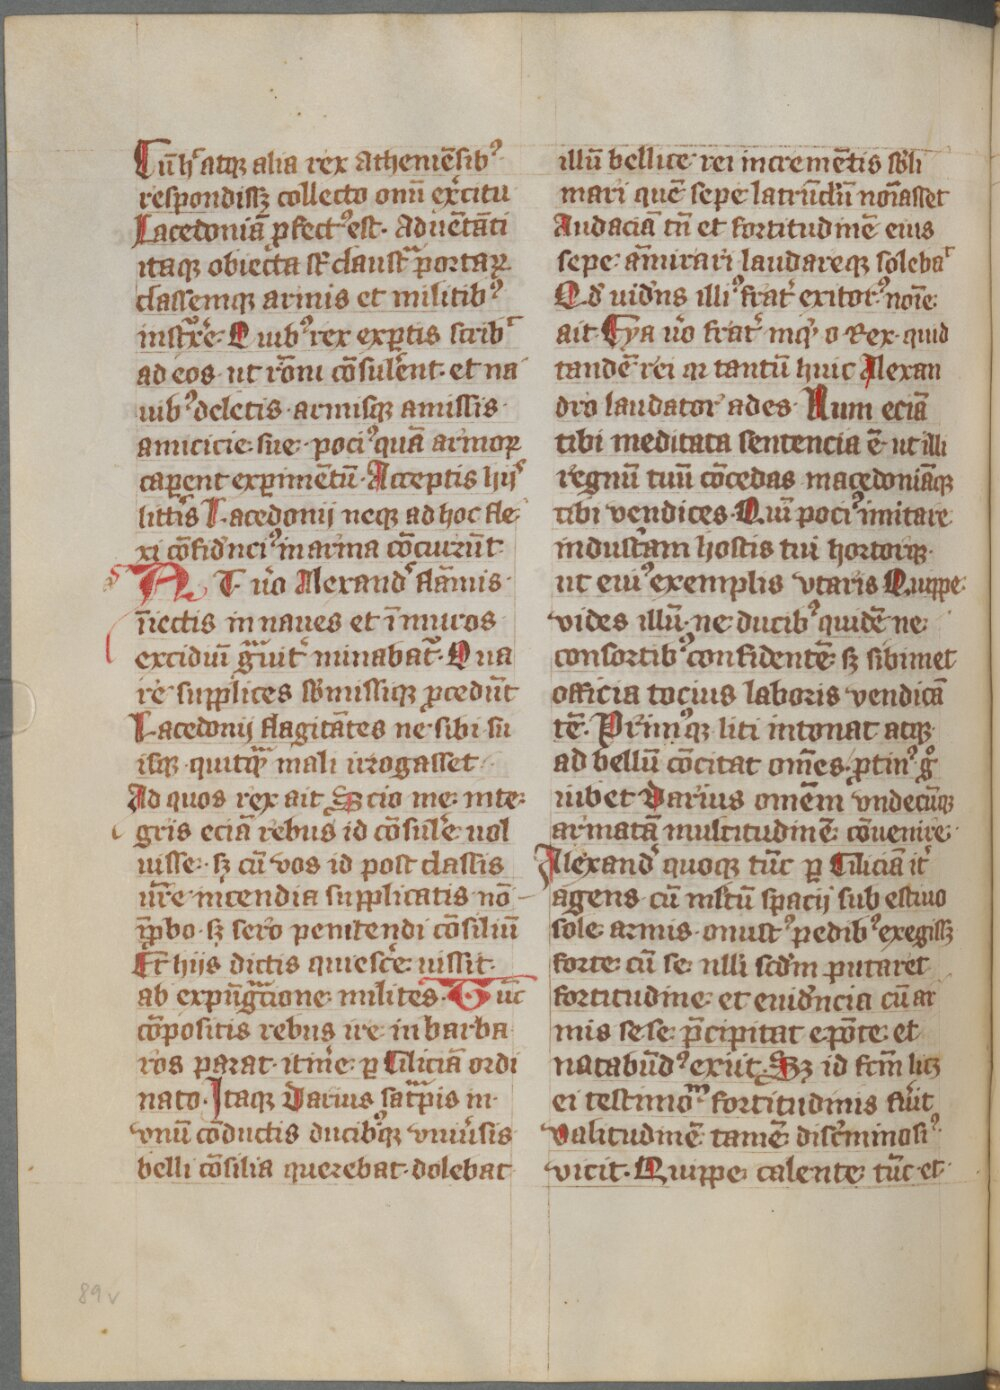 Cū hͨ atqꝫ alia rex Atheniēsibꝰ
respondissꝫ collecto omī exͬcitu
Lacedoniā ꝓfectꝰ est· Aduētāti
itaqꝫ obiecta sͭ claustͣ portaꝝ
classemqꝫ armis et militibꝰ
instͣxͬe· Quibꝰ rex exꝑtis scribͭ
ad eos· ut rōni cōsulͬent· et na
uibꝰ deletis· armisqꝫ amissis·
amicicie sue· pociꝰ quā armoꝝ
caꝑent exꝑimētū· Acceptis hijͤ
littͬis Lacedonij neqꝫ ad hoc fle
xi cōfidͬnciꝰ in arma cōcurūt·
AT u̾o Alexandͬ flāmis·
īiectis in naues et ī muros
excidiū gͣuit͛ minabatͬ· Qua
re supplices sb̄missiqꝫ ꝓcedūt
Lacedonij flagitātes ne sibi su
isqꝫ quitqͣ mali irrogasset·
Ad quos rex ait Scio me inte
gris eciā rebus id cōsulͬe uol
uisse· sꝫ cū vos id post classis
ur̄e incendia supplicatis nō
ꝓbo· sꝫ sero penitendi cōsiliū
Et hijs dictis quiescͬe iussit·
ab expūgͣcione milites· Tūc
cōpositis rebus ire in barba
ros parat· itinͬe ꝑ Ciliciā ordi
nato· Itaqꝫ Darius satͣpis in
vnū cōductis ducibꝰqꝫ vniu̾sis
belli cōsilia querebat· dolebat
illū bellice rei incremētis sb̄li
mari quē sepe latrūclū noīasset
Audaciā tn̄ et fortitudinē eius
sepe āmirari laudareqꝫ solebaͭ
Qd̄ uidͬns illiꝰ fratͬ exitorꝰ noīe
ait· Eya u̾o fratͬ inqͥ o Rex· quid
tandē rei ꝗ tantū huic Alexan
dro laudator ades· Num eciā
tibi meditata sentencia ē· ut illi
regnū tuū cōcedas macedoniāqꝫ
tibi vendices· Quī pociꝰ imitare
industͥam hostis tui hortorqꝫ·
ut eiuꝰ exemplis vtaris Quippe
vides illū· ne ducibꝰ quidē ne
consortibꝰ confidentē· sꝫ sibimet
officia tocius laboris vendicā
tē· Primꝰqꝫ liti intonat atqꝫ
ad bellū cōcitat om̄es· ꝓtinꝰ gͦ
iubet Darius omēm vndecūqꝫ
armatā multitudinē cōuenire·
Alexandͬ quoqꝫ tūc ꝑ Ciliciā it͛
agens· cū m̄ltū spacij sub estiuo
sole· armis· onustꝰ pedibꝰ exegissꝫ
forte· cū se nlli scd̄m putaret
fortitudine· et euidͬncia cū ar
mis sese p̄cipitat e pōte· et
natabūdꝰ exiit· Sꝫ id fcm̄ licꝫ
ei testimoͫ fortitudinis fuͬit
valitudinē tamē discͬminosiꝰ
vicit· Quippe calente tūc et
89v